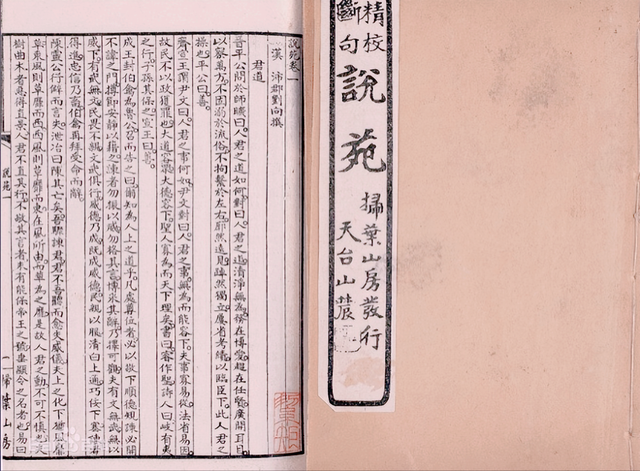 精校
斷句
說苑
掃葉山房發行
天台山農
說苑卷一
漢 沛郡劉向撰
君道
晉平公問於師曠曰人君之道如何對曰人君之道清淨無為務在博愛趨在任賢廣開耳目
以察萬方不固溺於流俗不拘繫於左右廓然遠見踔然獨立屢省考績以臨臣下此人君之
操也平公曰善
齊宣王謂尹文曰人君之事何如尹文對曰人君之事無為而能容下夫事寡易從法省易因
故民不以政獲罪也大道容眾大德容下聖人寡為而天下理矣書曰睿作聖詩人曰岐有夷
之行子孫其保之宣王曰善
成王封伯禽為魯公召而告之曰爾知為人上之道乎凡處尊位者必以敬下順德規諫必開
不諱之門撙節安靜以藉之諫者勿振以威勿格其言博采其辭乃擇可觀夫有文無武無以
威下有武無文民畏不親文武俱行威德乃成既成威德民親以服清白上通巧佞下塞諫者
得進忠信乃畜伯禽再拜受命而辭
陳靈公行僻而言失泄冶曰陳其亡矣吾驟諫君君不吾聽而愈失威儀夫上之化下猶風靡
草東風則草靡而西西風則草靡而東在風所由而草為之靡是故人君之動不可不慎也夫
樹曲木者惡得直景人君不直其行不敬其言者未有能保帝王之號垂顯令之名者也易曰
說苑一
一
掃葉山房